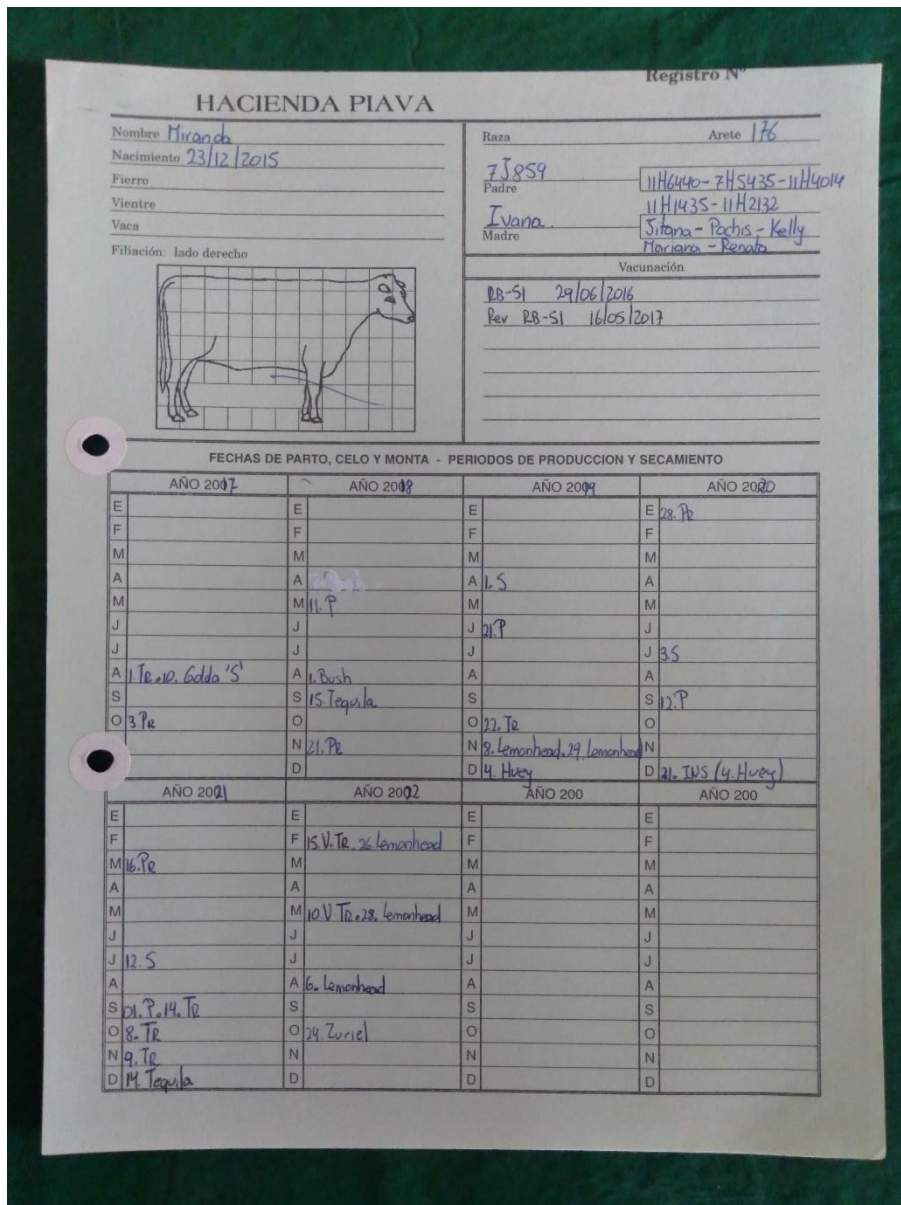 Registro Nº
HACIENDA PIAVA
Nombre Miranda
Nacimiento 23/12/2015
Fierro
Vientre
Vaca
Filiación: lado derecho
Raza Arete 176
7J859
Padre
11H6440-7H5435-11H4014
11H1435-11H2132
Ivana.
Madre
Jitana-Pochis-Kelly
Mariana-Renata
Vacunación
RB-51 29/06/2016
Rev RB-51 16/05/2017
FECHAS DE PARTO, CELO Y MONTA - PERIODOS DE PRODUCCION Y SECAMIENTO
AÑO 2017 AÑO 2018 AÑO 2019 AÑO 2020
E E E E 28. PR
F F F F
M M M M
A A A 1. S A
M M 11. P M M
J J J 21. P J
J J J J 3 S
A 1. TR. 10. Golda 'S' A 1. Bush A A
S S 15. Tequila S S 12. P
O 3 PR O O 22. TR O
N 21. PR N 8. Lemonhead. 29. Lemonhead N
D D 4. Huey D 21. INS (4. Huey)
AÑO 2021 AÑO 2022 AÑO 200 AÑO 200
E E E E
F F 15. V. TR. 26 Lemonhead F F
M 16. PR M M M
A A A A
M M 10. V TR. 28. Lemonhead M M
J J J J
J 12. S J J J
A A 6. Lemonhead A A
S 01. P. 14. TR S S S
O 8. TR O 24. Zuriel O O
N 9. TR N N N
D 14. Tequila D D D